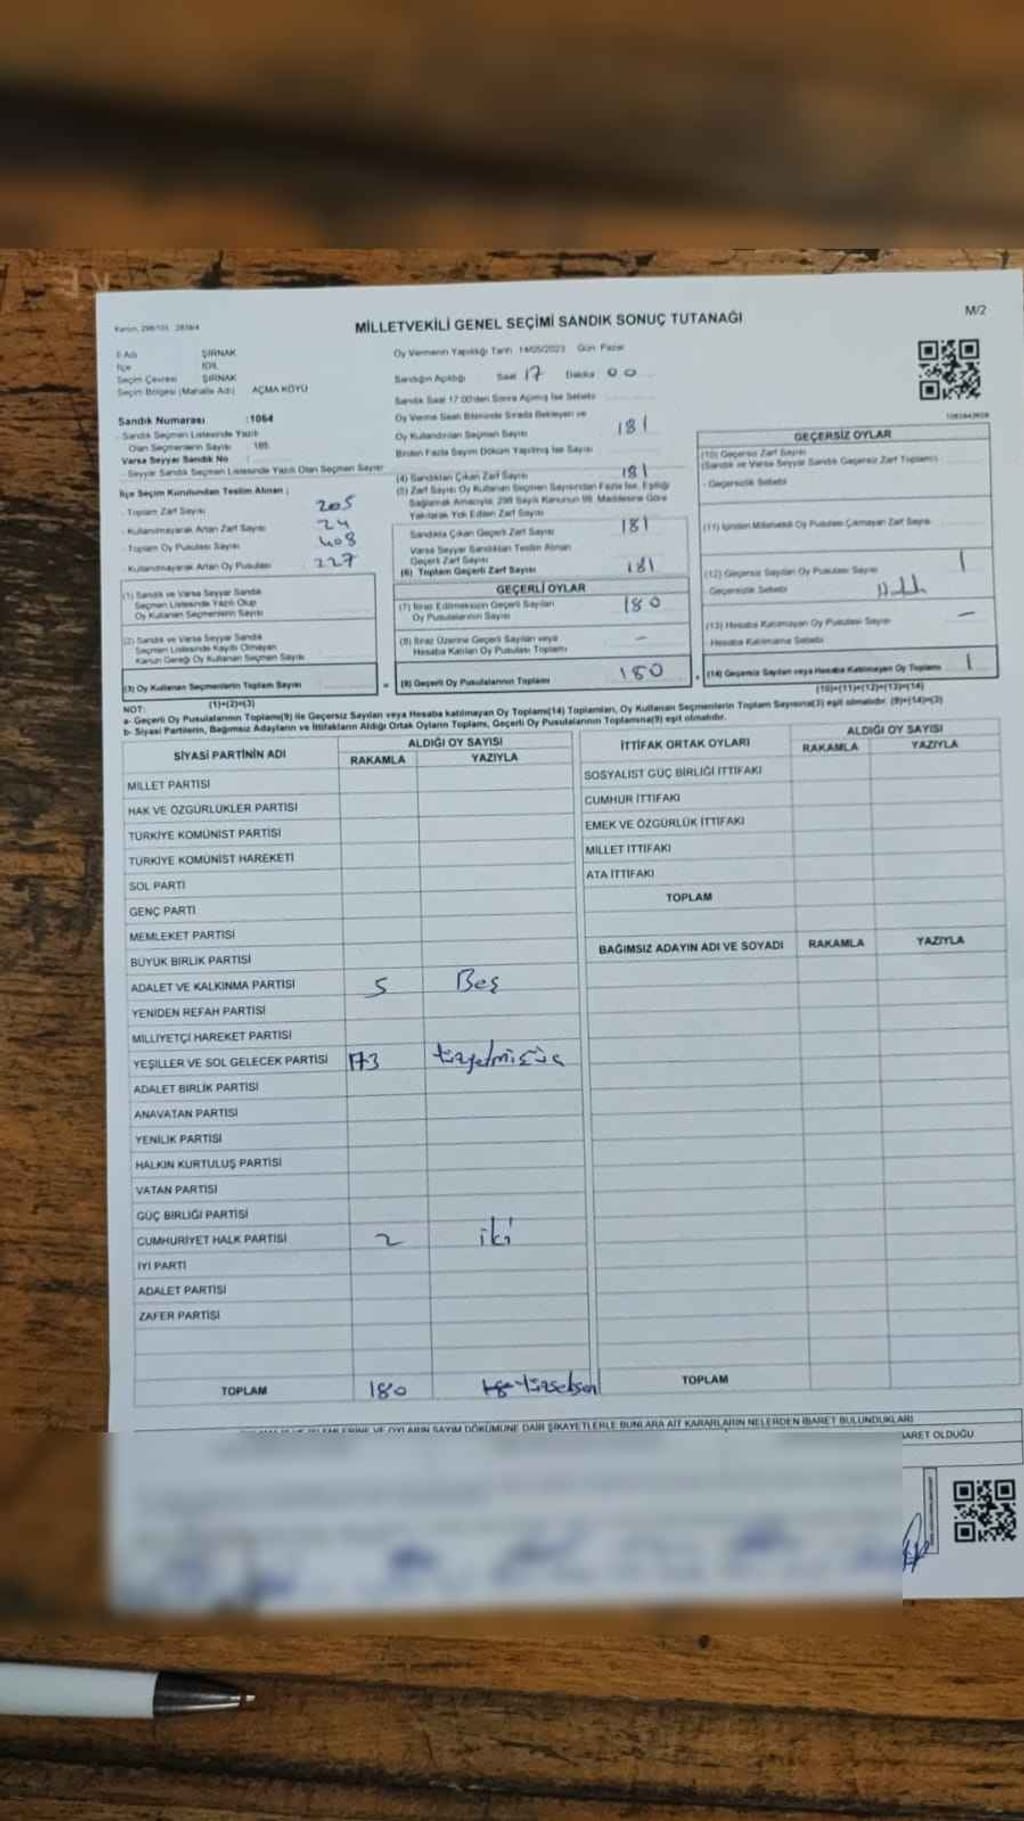 MİLLETVEKİLİ GENEL SEÇİMİ SANDIK SONUÇ TUTANAĞI
M/2
İl Adı ŞIRNAK
İlçe İDİL
Seçim Çevresi ŞIRNAK
Seçim Bölgesi (Mahalle Adı) AÇMA KÖYÜ
Sandık Numarası :1064
Sandık Seçmen Listesinde Yazılı
Olan Seçmenlerin Sayısı
Varsa Seyyar Sandık No
Seyyar Sandık Seçmen Listesinde Yazılı Olan Seçmen Sayısı
İlçe Seçim Kurulundan Teslim Alınan ;
- Toplam Zarf Sayısı 205
- Kullanılmayarak Artan Zarf Sayısı 24
- Toplam Oy Pusulası Sayısı 408
- Kullanılmayarak Artan Oy Pusulası 227
(1) Sandık ve Varsa Seyyar Sandık
Seçmen Listesinde Yazılı Olup
Oy Kullanan Seçmenlerin Sayısı
(2) Sandık ve Varsa Seyyar Sandık
Seçmen Listesinde Kayıtlı Olmayan
Kanun Gereği Oy Kullanan Seçmen Sayısı
(3) Oy Kullanan Seçmenlerin Toplam Sayısı
(1)+(2)=(3)
Oy Vermenin Yapıldığı Tarih 14/05/2023 Gün Pazar
Sandığın Açıldığı Saat 17 Dakika 00
Sandık Saat 17:00'den Sonra Açılmış İse Sebebi
Oy Verme Saati Bitiminde Sırada Bekleyen ve
Oy Kullandırılan Seçmen Sayısı 181
Birden Fazla Sayım Döküm Yapılmış İse Sayısı
(4) Sandıktan Çıkan Zarf Sayısı 181
(5) Zarf Sayısı Oy Kullanan Seçmen Sayısından Fazla İse, Eşitliği
Sağlamak Amacıyla, 298 Sayılı Kanunun 98. Maddesine Göre
Yakılarak Yok Edilen Zarf Sayısı
Sandıkta Çıkan Geçerli Zarf Sayısı 181
Varsa Seyyar Sandıktan Teslim Alınan
Geçerli Zarf Sayısı
(6) Toplam Geçerli Zarf Sayısı 181
GEÇERLİ OYLAR
(7) İtiraz Edilmeksizin Geçerli Sayılan
Oy Pusulalarının Sayısı 180
(8) İtiraz Üzerine Geçerli Sayılan veya
Hesaba Katılan Oy Pusulası Toplamı -
(9) Geçerli Oy Pusulalarının Toplamı 180
GEÇERSİZ OYLAR
(10) Geçersiz Zarf Sayısı
(Sandık ve Varsa Seyyar Sandık Geçersiz Zarf Toplamı)
- Geçersizlik Sebebi
(11) İçinden Milletvekili Oy Pusulası Çıkmayan Zarf Sayısı
(12) Geçersiz Sayılan Oy Pusulası Sayısı 1
Geçersizlik Sebebi
(13) Hesaba Katılmayan Oy Pusulası Sayısı -
Hesaba Katılmama Sebebi
(14) Geçersiz Sayılan veya Hesaba Katılmayan Oy Toplamı 1
(10)+(11)+(12)+(13)=(14)
NOT:
a- Geçerli Oy Pusulalarının Toplamı(9) ile Geçersiz Sayılan veya Hesaba katılmayan Oy Toplamı(14) Toplamları, Oy Kullanan Seçmenlerin Toplam Sayısına(3) eşit olmalıdır. (9)+(14)=(3)
b- Siyasi Partilerin, Bağımsız Adayların ve İttifakların Aldığı Ortak Oyların Toplamı, Geçerli Oy Pusulalarının Toplamına(9) eşit olmalıdır.
SİYASİ PARTİNİN ADI ALDIĞI OY SAYISI
RAKAMLA YAZIYLA
MİLLET PARTİSİ
HAK VE ÖZGÜRLÜKLER PARTİSİ
TÜRKİYE KOMÜNİST PARTİSİ
TÜRKİYE KOMÜNİST HAREKETİ
SOL PARTİ
GENÇ PARTİ
MEMLEKET PARTİSİ
BÜYÜK BİRLİK PARTİSİ
ADALET VE KALKINMA PARTİSİ 5 Beş
YENİDEN REFAH PARTİSİ
MİLLİYETÇİ HAREKET PARTİSİ
YEŞİLLER VE SOL GELECEK PARTİSİ 173
ADALET BİRLİK PARTİSİ
ANAVATAN PARTİSİ
YENİLİK PARTİSİ
HALKIN KURTULUŞ PARTİSİ
VATAN PARTİSİ
GÜÇ BİRLİĞİ PARTİSİ
CUMHURİYET HALK PARTİSİ 2 iki
İYİ PARTİ
ADALET PARTİSİ
ZAFER PARTİSİ
TOPLAM 180
İTTİFAK ORTAK OYLARI ALDIĞI OY SAYISI
RAKAMLA YAZIYLA
SOSYALİST GÜÇ BİRLİĞİ İTTİFAKI
CUMHUR İTTİFAKI
EMEK VE ÖZGÜRLÜK İTTİFAKI
MİLLET İTTİFAKI
ATA İTTİFAKI
TOPLAM
BAĞIMSIZ ADAYIN ADI VE SOYADI RAKAMLA YAZIYLA
TOPLAM
VE OYLARIN SAYIM DÖKÜMÜNE DAİR ŞİKAYETLERLE BUNLARA AİT KARARLARIN NELERDEN İBARET BULUNDUKLARI
OLDUĞU